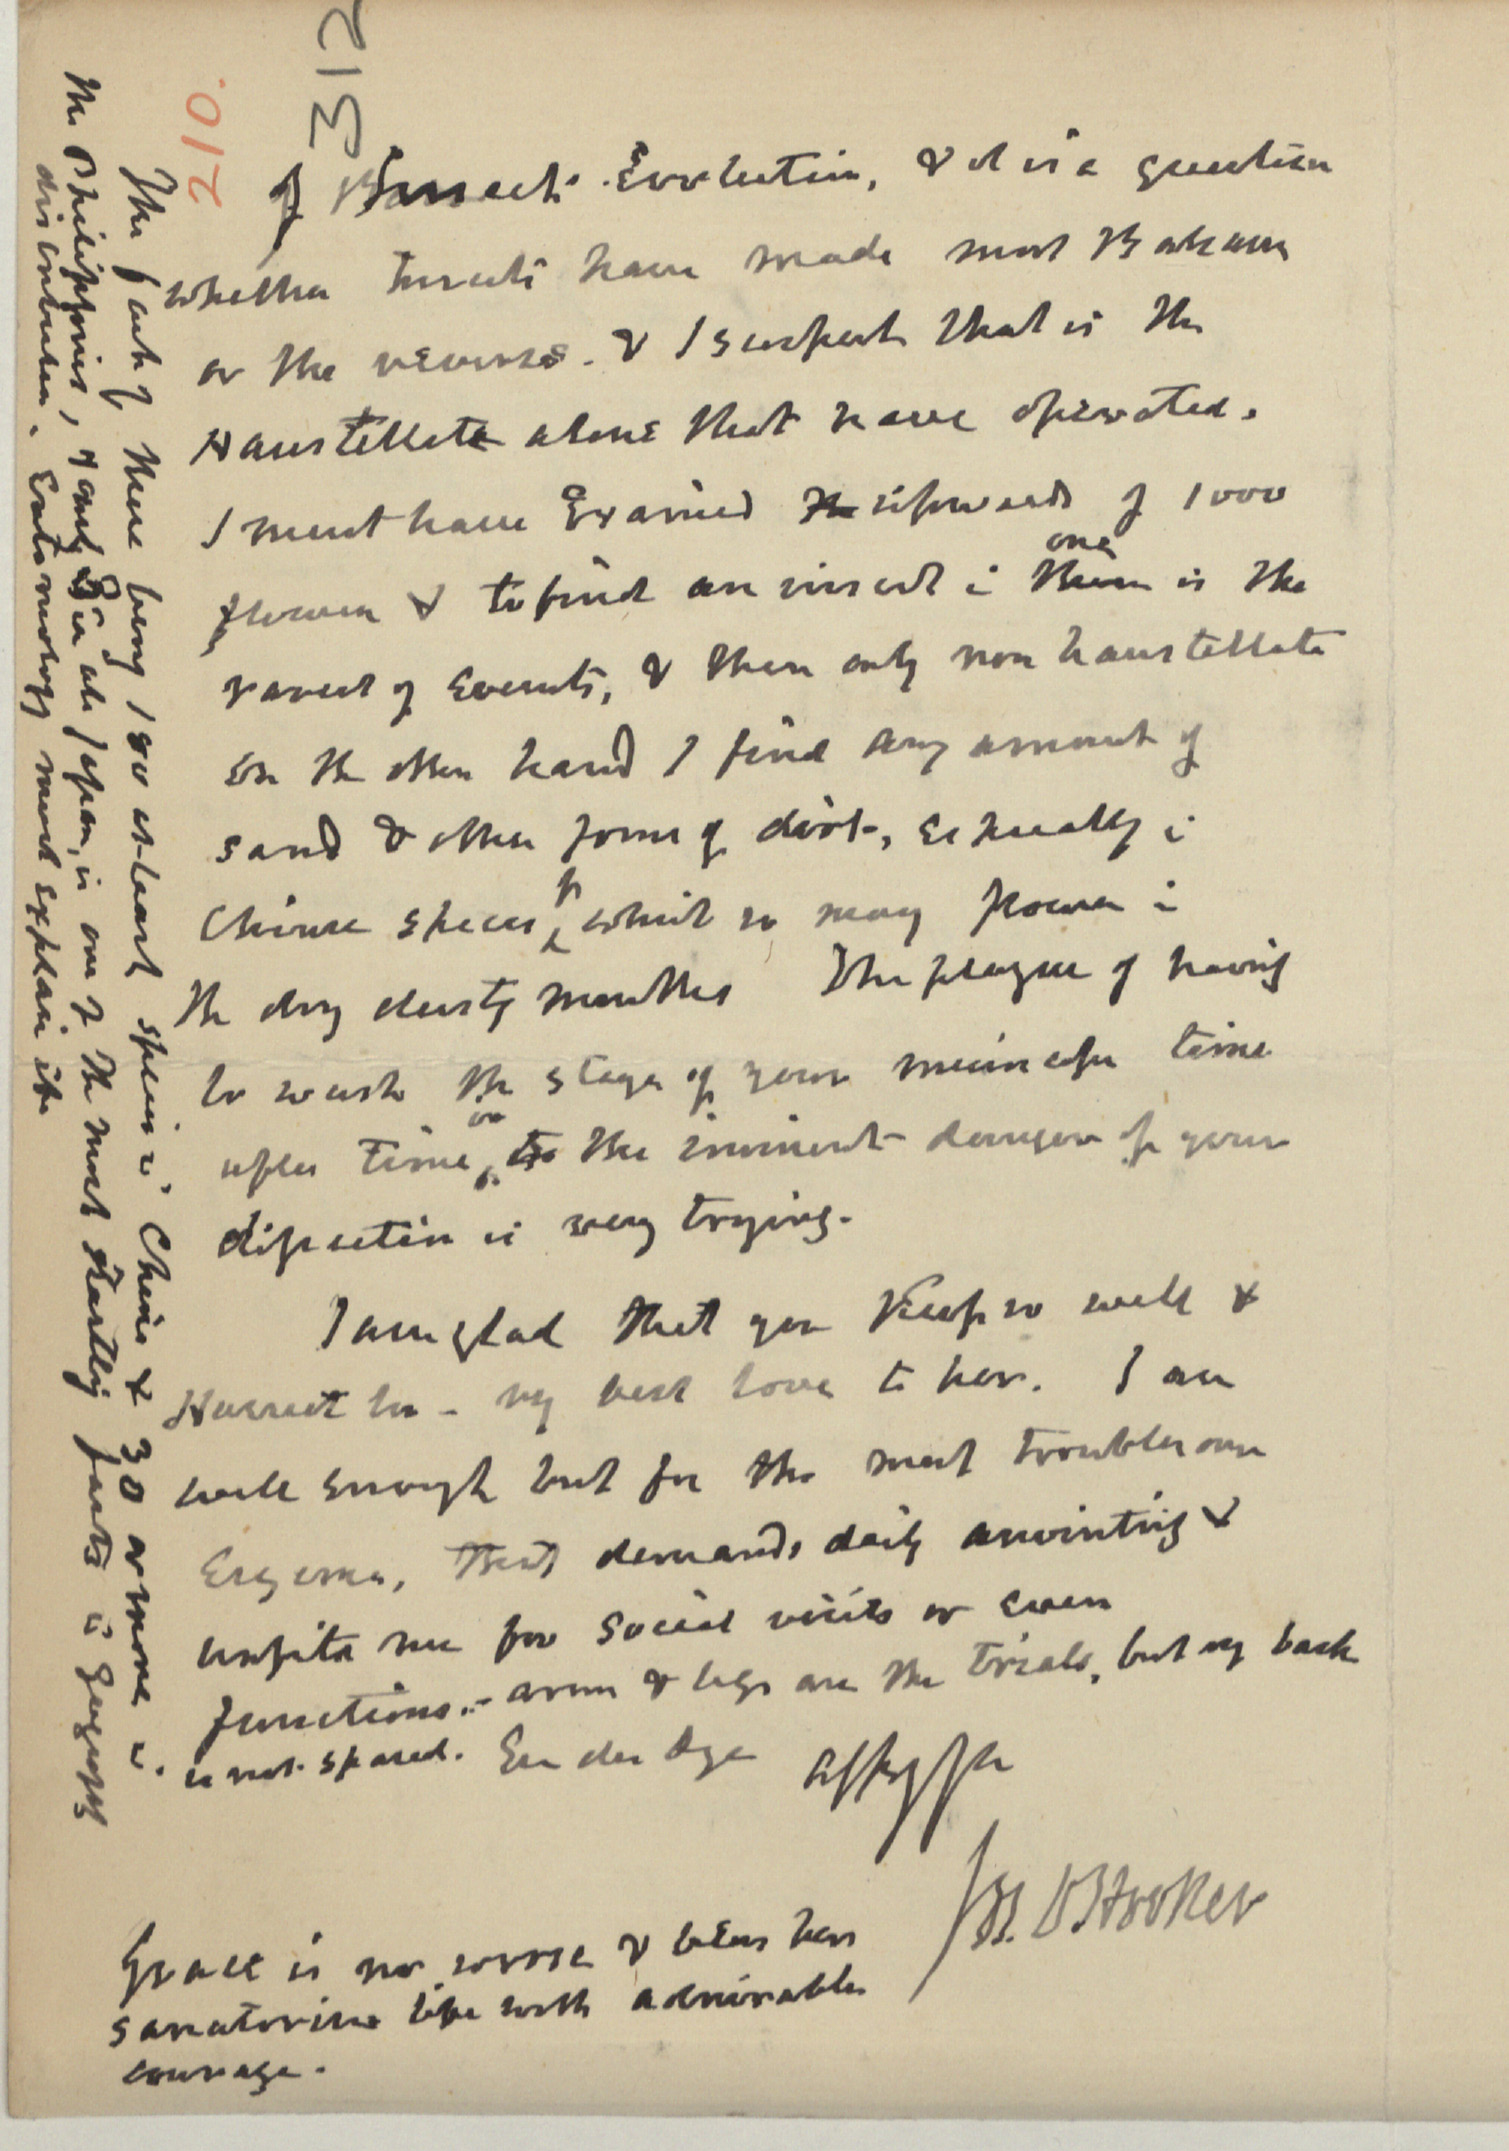 of Insect Evolution, & it is a question
whether Insects have made most Balsams
or the reverse. & I suspect that it is the
Haustellate alone that have operated.
I must have Examined upwards of 1000
flowers & to find an insect in one is the
rarest of Events, & then only non haustellate
on the other hand I find any amount of
sand & other forms of dirt, especially in
Chinese species, which so many flower in
the dry dusty months The plague of having
to wash the stage of your microscope time
after time, or the iminent danger of your
dissection is very trying.
I am glad that you keep so well &
Harriet too - my best love to her. I am
well enough but for the most troublesome
Eczema, that demands daily anointing &
unfits me for social visits or even
functions.- arms & legs are the trials, but my back
is not spared. 
Jos. D Hooker
Grace is no worse & bears her
sanatorium life with admirable
courage.
The fact of there being 180 at-least species in China & 30 or more in
the Philippines, & only in all Japan, is one of the most startling facts in geogrl
distribution. Entomology must explain it
210.
312